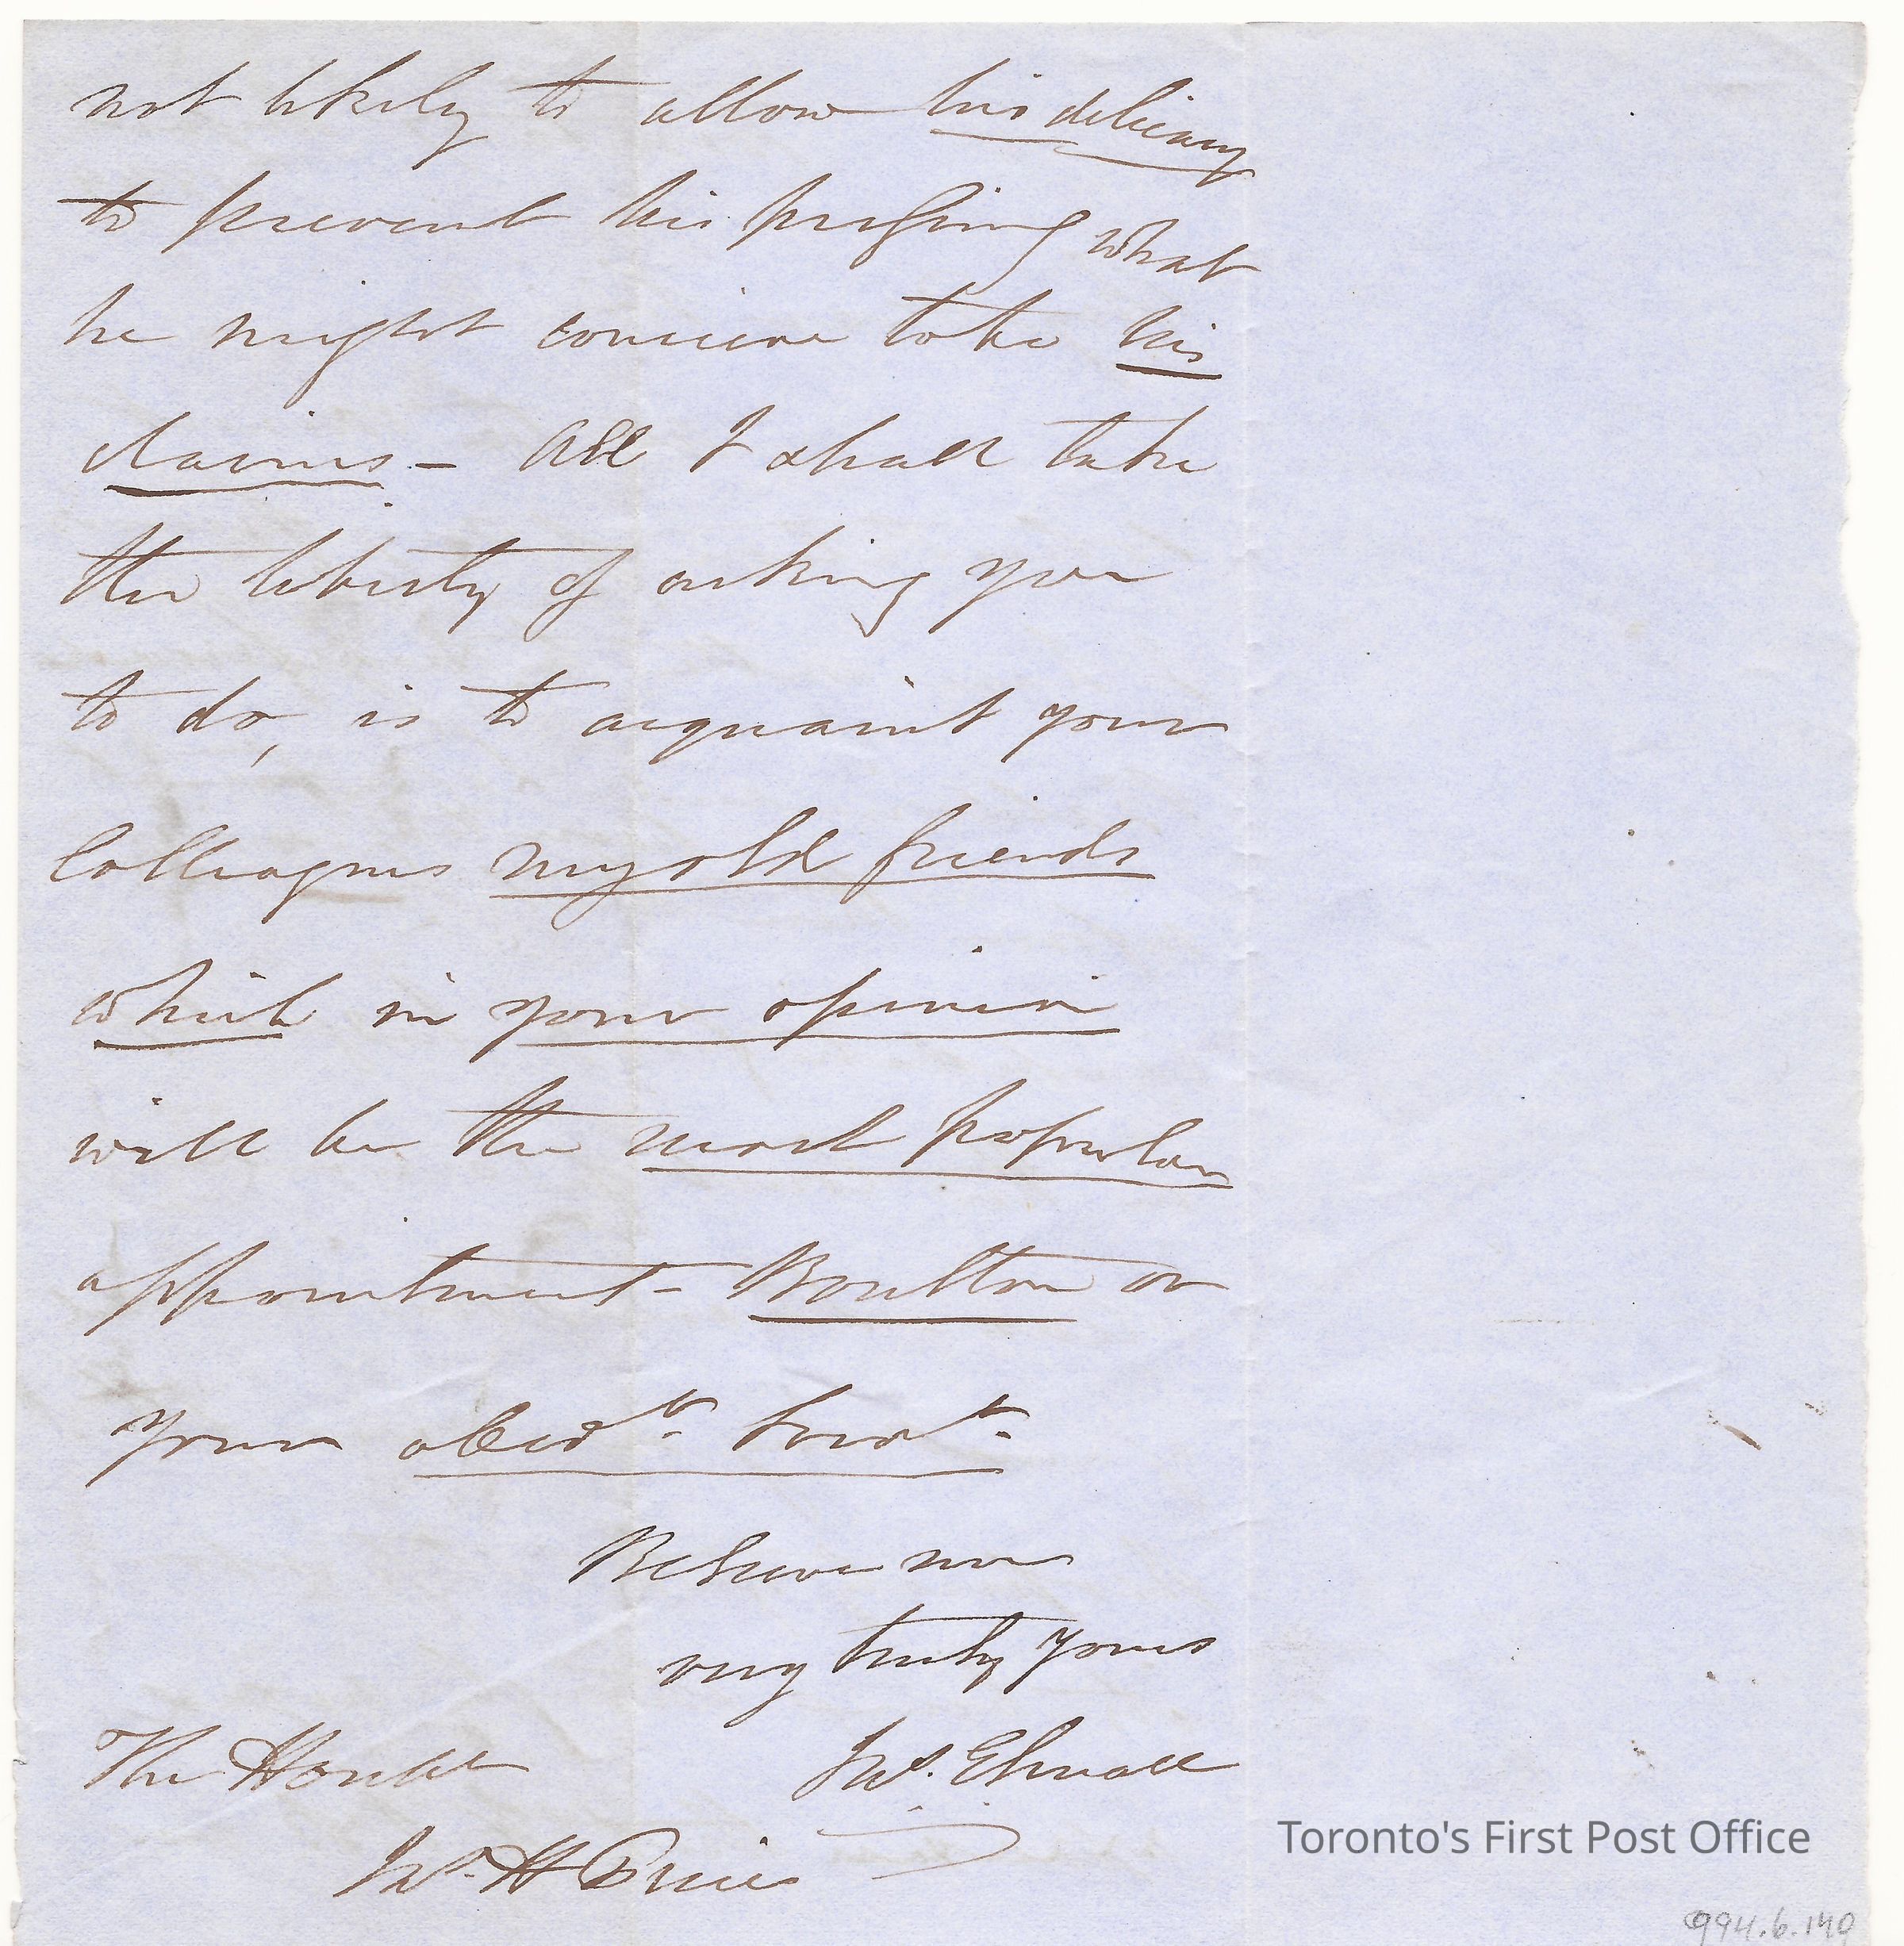 not likely to allow his delicacy
to prevent his pressing what
he might conceive to be his
claims - All I shall take
the liberty of asking you
to do, is to acquaint your
Colleagues my old friends
which in your opinion
will be the most popular
appointment - Boulton or
your obedt. servt.
Believe me
very truly yours
The Honble
Jno. Elmsall
Toronto's First Post Office
994.6.140